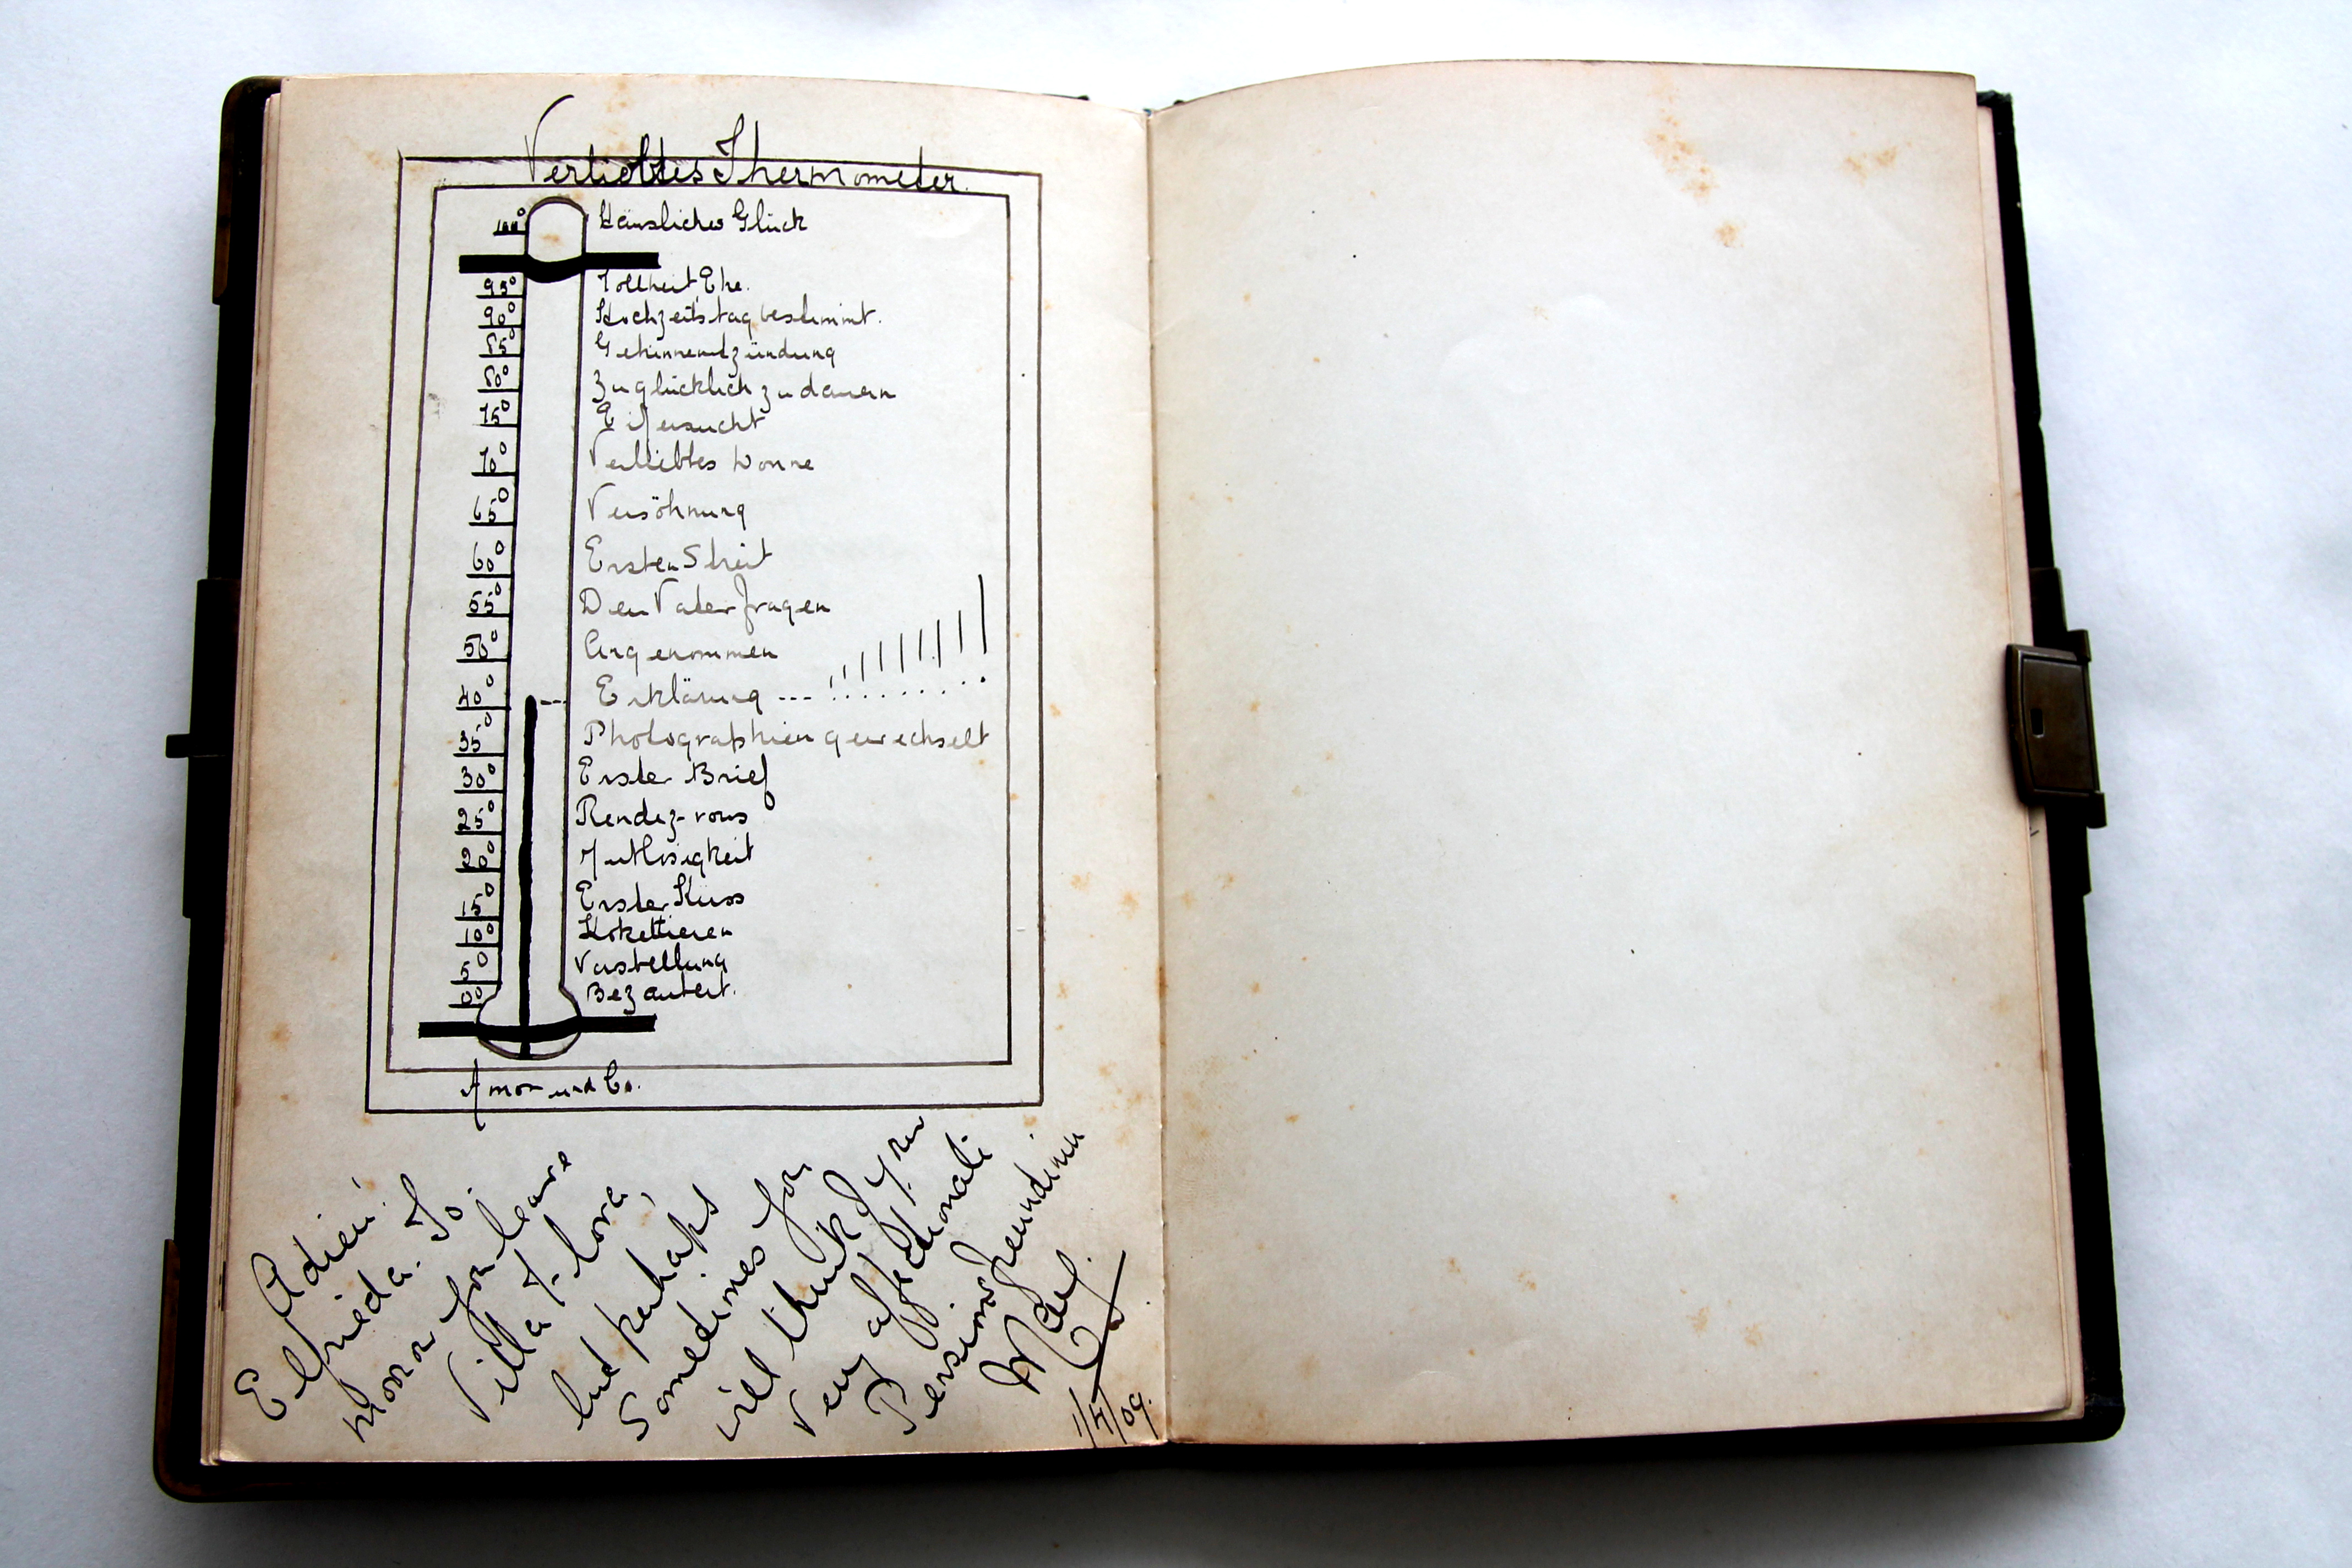 Verliebtes Thermometer.
100° Häusliches Glück
95° Tollheit Ehe.
90° Hochzeitstag bestimmt.
85° Gehirnentzündung
80° Zu glücklich zu dauern
75° Eifersucht
70° Verliebtes Wonne
65° Versöhnung
60° Ersten Streit
55° Den Vater fragen
50° Angenommen
40° Erklärung --- !!!!!!!!!
35° Photographien gewechselt
30° Erster Brief
25° Rendez-vous
20° Mutlosigkeit
15° Erster Kuss
10° Kokettieren
5° Vorstellung
00° Bezaubert.
Amor und Co.
Adieu!
Elfrieda. To
morrow you leave
Villa Flora,
but perhaps
sometimes you
will think of your
very affectionate
Pensionsfreundinn
1/4/09.